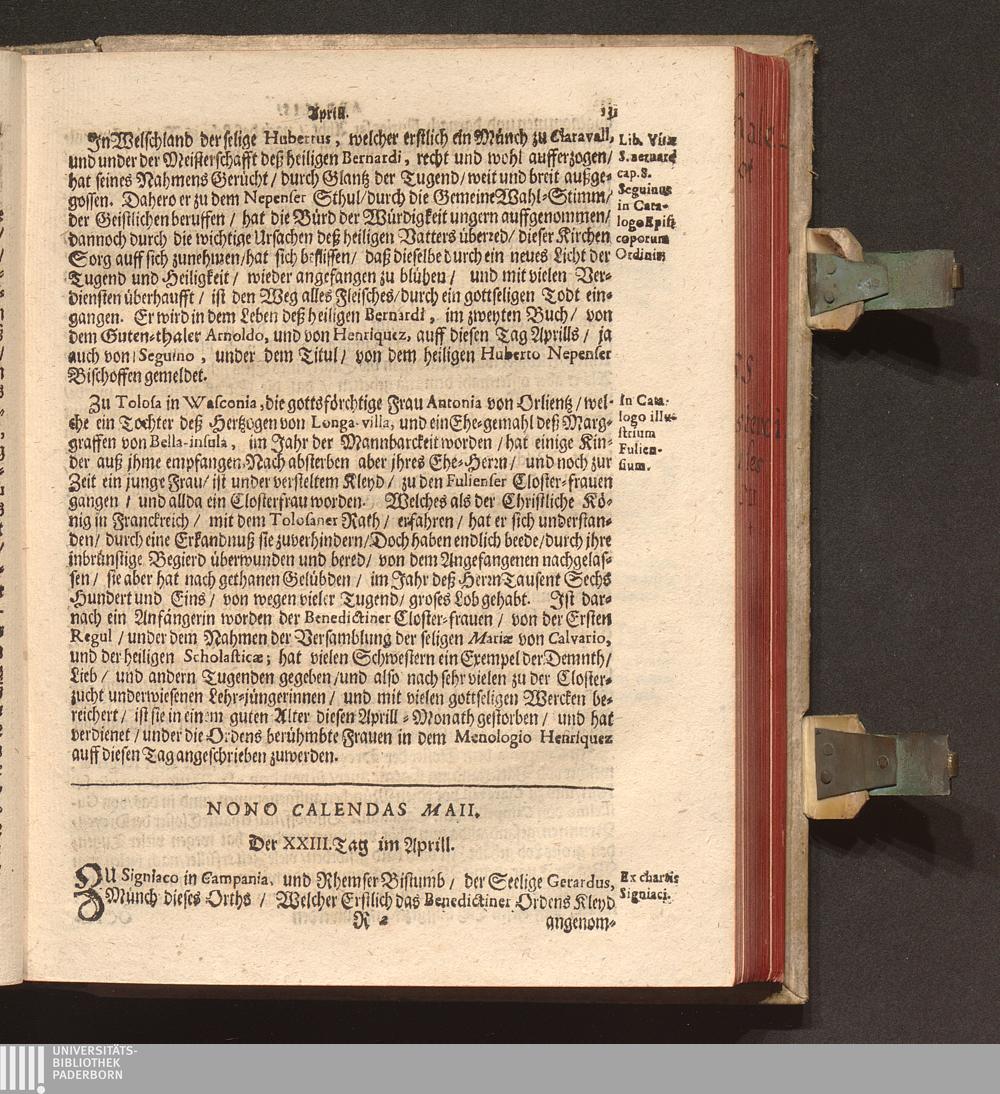 Aprill.
131
In Welschland der selige Hubertus, welcher erstlich ein Münch zu Claravall,
und under der Meisterschafft deß heiligen Bernardi, recht und wohl aufferzogen/
hat seines Nahmens Gerücht/ durch Glantz der Tugend/ weit und breit außge-
gossen. Dahero er zu dem Nepenser Sthul/ durch die Gemeine Wahl-Stimm/
der Geistlichen beruffen/ hat die Bürd der Würdigkeit ungern auffgenommen/
dannoch durch die wichtige Ursachen deß heiligen Vatters überred/ dieser Kirchen
Sorg auff sich zunehmen/hat sich beflissen/ daß dieselbe durch ein neues Licht der
Tugend und Heiligkeit/ wieder angefangen zu blühen/ und mit vielen Ver-
diensten überhaufft/ ist den Weg alles Fleisches/durch ein gottseligen Todt ein-
gangen. Er wird in dem Leben deß heiligen Bernardi, im zweyten Buch/ von
dem Guten-thaler Arnoldo, und von Henriquez, auff diesen Tag Aprills/ ja
auch von Seguino, under dem Titul/ von dem heiligen Huberto Nepenser
Bischoffen gemeldet.
Lib. Vitæ
S. Bernard
cap. 8.
Seguinus
in Cata-
logo Epis
coporum
Ordinis
Zu Tolosa in Wasconia, die gottsförchtige Frau Antonia von Orlientz/ wel-
che ein Tochter deß Hertzogen von Longa-villa, und ein Ehe-gemahl deß Marg-
graffen von Bella-insula, im Jahr der Mannbarckeit worden/ hat einige Kin-
der auß ihme empfangen. Nach absterben aber ihres Ehe-Herrn/ und noch zur
Zeit ein junge Frau/ ist under versteltem Kleyd/ zu den Fulienser Closter-frauen
gangen/ und allda ein Closterfrau worden. Welches als der Christliche Kö-
nig in Franckreich/ mit dem Tolosaner Rath/ erfahren/ hat er sich understan-
den/ durch eine Erkandnuß sie zuverhindern/Doch haben endlich beede/durch ihre
inbrünstige Begierd überwunden und bered/ von dem Angefangenen nachgelas-
sen/ sie aber hat nach gethanen Gelübden/ im Jahr deß Herrn Tausent Sechs
Hundert und Eins/ von wegen vieler Tugend/ groses Lob gehabt. Ist dar-
nach ein Anfängerin worden der Benedictiner Closter-frauen/ von der Ersten
Regul/ under dem Nahmen der Versamblung der seligen Mariæ von Calvario,
und der heiligen Scholasticæ; hat vielen Schwestern ein Exempel der Demnth/
Lieb/ und andern Tugenden gegeben/und also nach sehr vielen zu der Closter-
zucht underwiesenen Lehr-jüngerinnen/ und mit vielen gottseligen Wercken be-
reichert/ ist sie in einem guten Alter diesen Aprill-Monath gestorben/ und hat
verdienet/ under die Ordens berühmbte Frauen in dem Menologio Henriquez
auff diesen Tag angeschrieben zuwerden.
In Cata-
logo illu-
strium
Fulien-
sium.
NONO CALENDAS MAII.
Der XXIII. Tag im Aprill.
ZU Signiaco in Campania, und Rhemser Bistumb/ der Seelige Gerardus,
Münch dieses Orths/ Welcher Erstlich das Benedictiner Ordens Kleyd
Ex chartis
Signiaci.
R 2
angenom-
UNIVERSITÄTS-
BIBLIOTHEK
PADERBORN